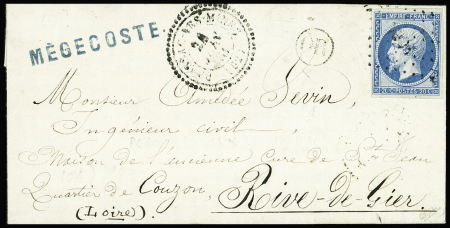 MÈGECOSTE
OR
EMPIRE FRANC
20 C. POSTES 20 C.
Monsieur Amédée Sevin,
Ingénieur civil,
Maison de l'ancienne cure de St Jean
Quartier de Couzon, Rive-de-Gier.
(Loire)